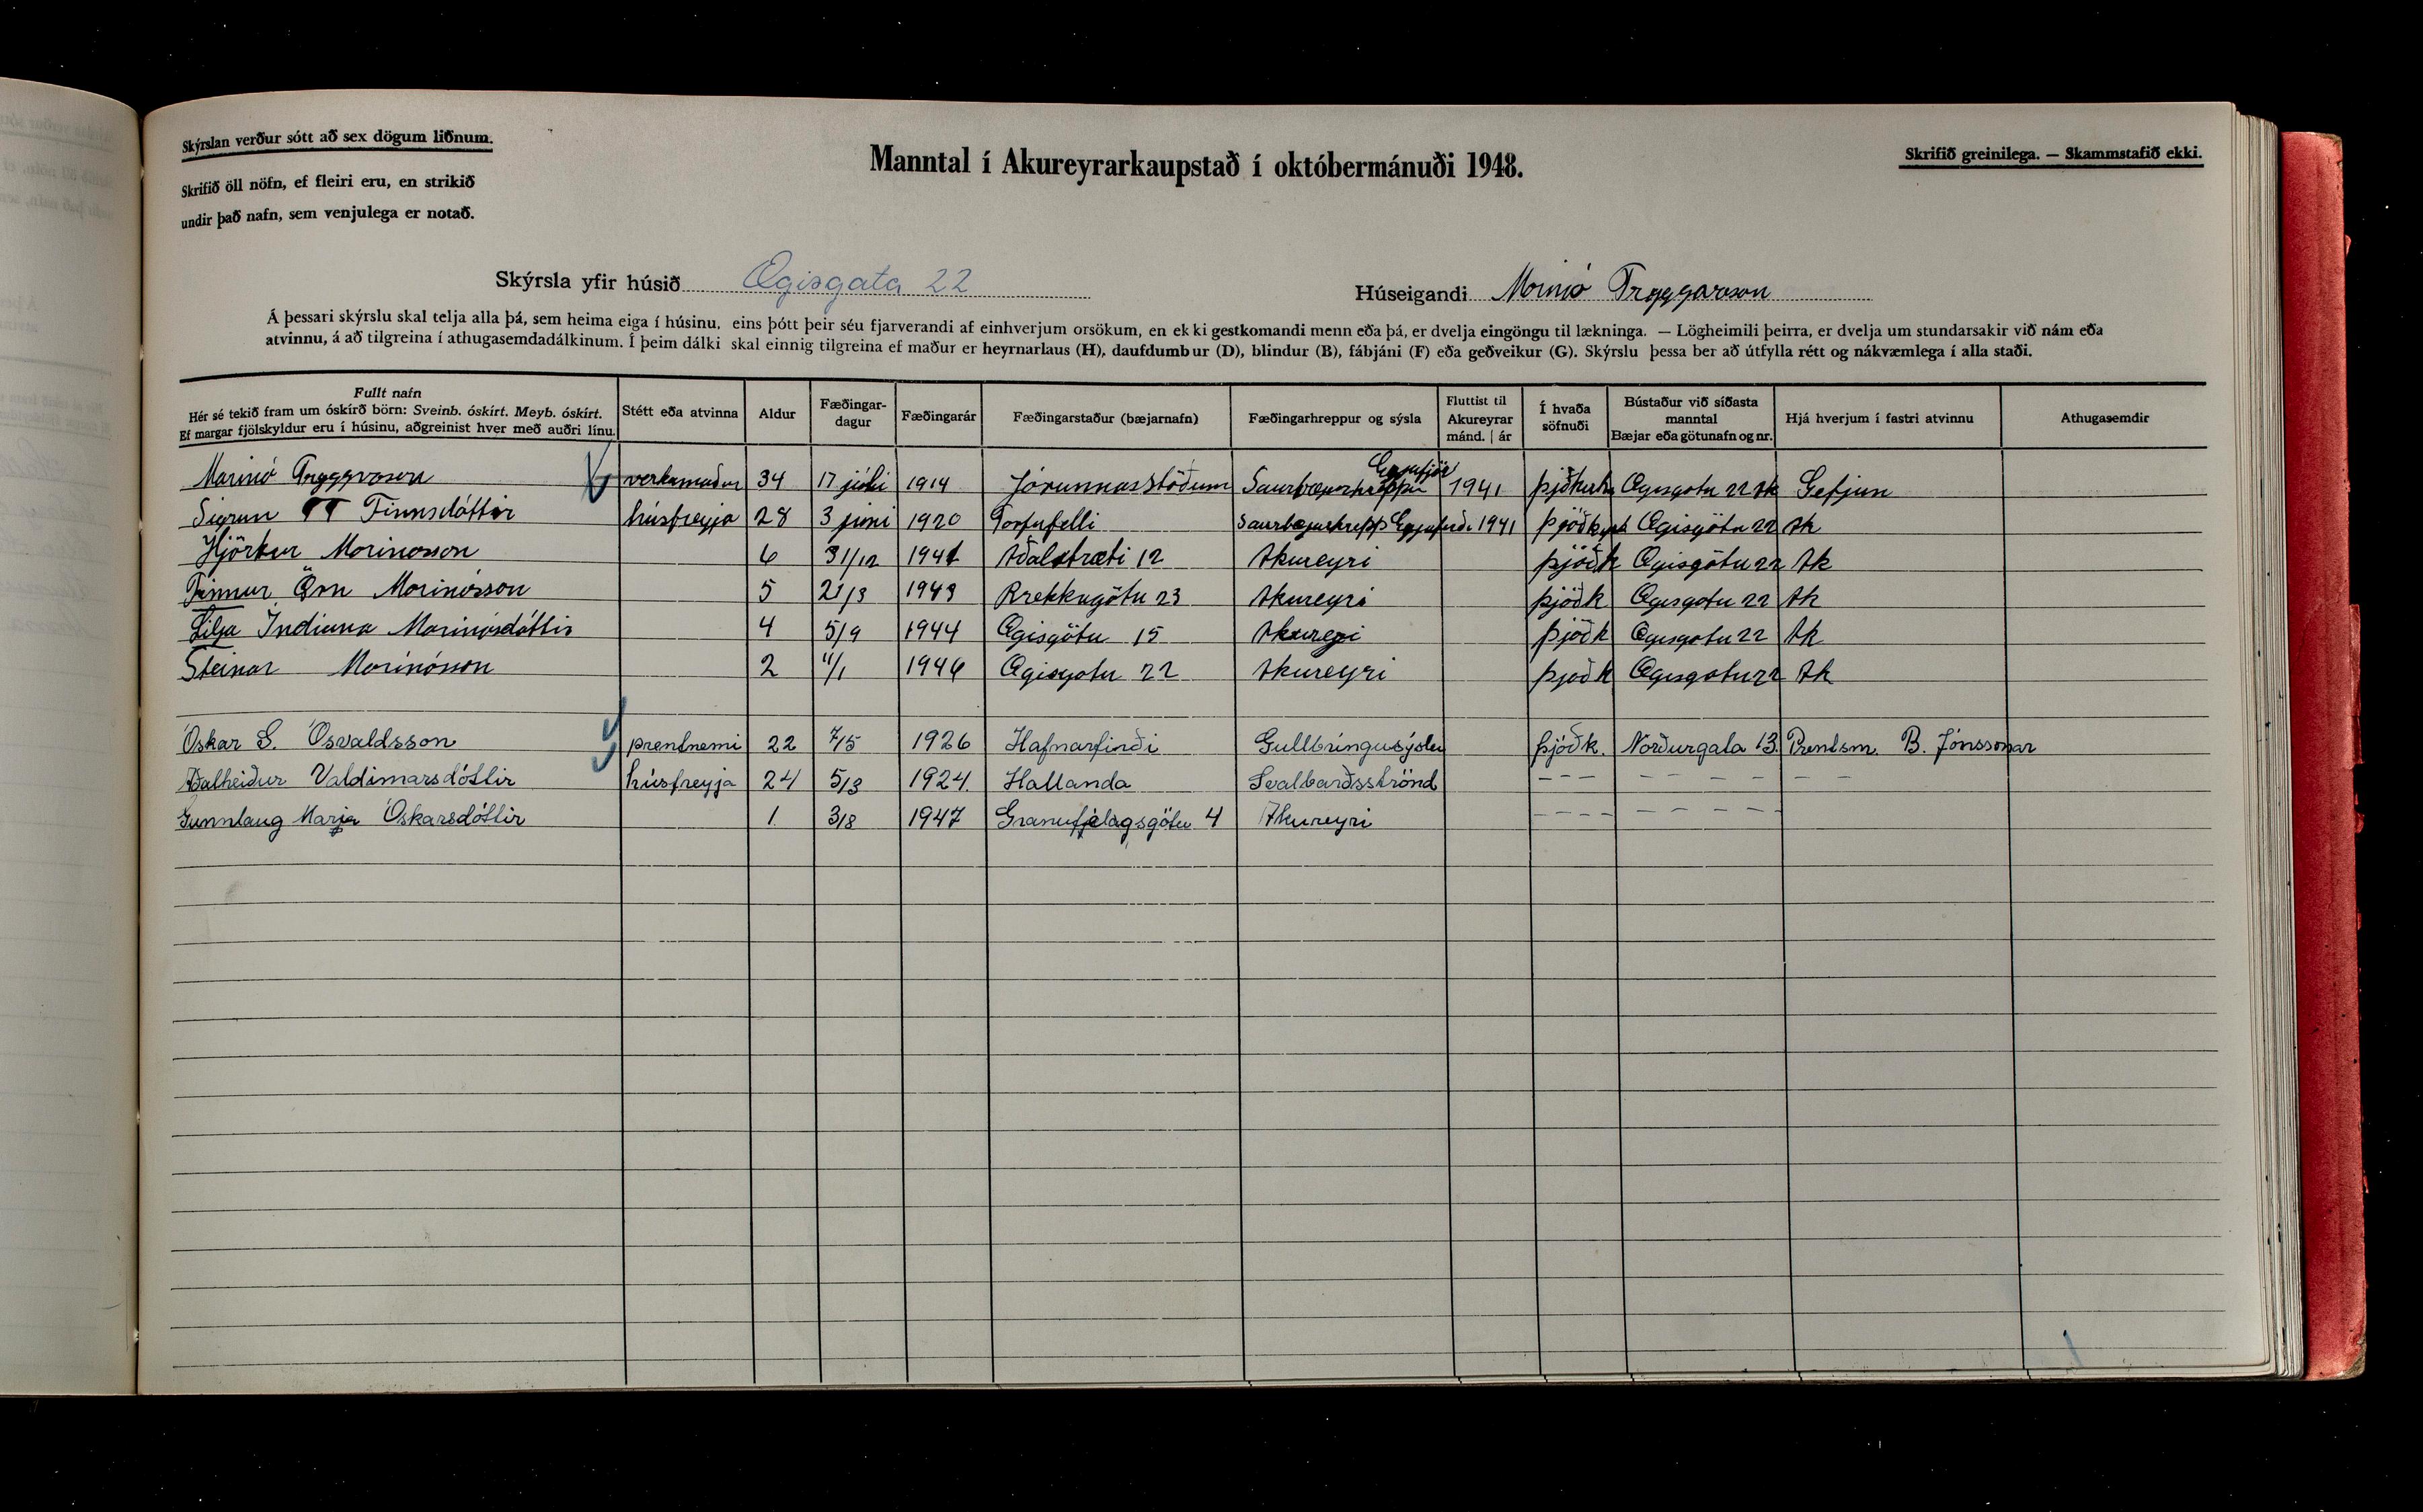 Skýrslan verður sótt að sex dögum liðnum.
Skrifið öll nöfn, ef fleiri eru, en strikið
undir það nafn, sem venjulega er notað.
Manntal í Akureyrarkaupstað í októbermánuði 1948.
Skrifið greinilega. — Skammstafið ekki.
Skýrsla yfir húsið Ægisgata 22
Húseigandi Marinó Tryggvason
Á þessari skýrslu skal telja alla þá, sem heima eiga í húsinu, eins þótt þeir séu fjarverandi af einhverjum orsökum, en ekki gestkomandi menn eða þá, er dvelja eingöngu til lækninga. — Lögheimili þeirra, er dvelja um stundarsakir við nám eða
atvinnu, á að tilgreina í athugasemdadálkinum. Í þeim dálki skal einnig tilgreina ef maður er heyrnarlaus (H), daufdumbur (D), blindur (B), fábjáni (F) eða geðveikur (G). Skýrslu þessa ber að útfylla rétt og nákvæmlega í alla staði.
Fullt nafn
Hér sé tekið fram um óskírð börn: Sveinb. óskírt. Meyb. óskírt.
Ef margar fjölskyldur eru í húsinu, aðgreinist hver með auðri línu.
Stétt eða atvinna
Aldur
Fæðingar-
dagur
Fæðingarár
Fæðingarstaður (bæjarnafn)
Fæðingarhreppur og sýsla
Fluttist til
Akureyrar
mánd. | ár
Í hvaða
söfnuði
Bústaður við síðasta
manntal
Bæjar eða götunafn og nr.
Hjá hverjum í fastri atvinnu
Athugasemdir
Marinó Tryggvason verkamaður 34 17 júlí 1914 Jórunnarstöðum Saurbæjarhreppi Eyjafjör 1941 þjóðkirk Ægisgötu 22 Ak Gefjun
Sigrun Finnsdóttir húsfreyja 28 3 júní 1920 Torfufelli Saurbæjarhrepp 1941 Ægisgötu 22 Ak
Hjörtur Marinosson 6 31/12 1941 Aðalstræti 12 Akureyri þjóðk Ægisgötu 22 Ak
Finnur Örn Marinósson 5 21/3 1943 Brekkugötu 23 Akureyri þjóðk Ægisgötu 22 Ak
Lilja Indiana Marinósdóttir 4 5/9 1944 Ægisgötu 15 Akureyri þjóðk Ægisgötu 22 Ak
Steinar Marinósson 2 11/1 1946 Ægisgotu 22 Akureyri þjoðk Ægisgotu 22 Ak
Óskar S. Ósvaldsson prentnemi 22 7/5 1926 Hafnarfirði Gullbringusýslu þjóðk. Norðurgata 13. Prentsm. B. Jónssonar
Aðalheiður Valdimarsdóttir húsfreyja 24 5/3 1924. Hallanda Svalbarðsströnd – – – – – – – – – –
Gunnlaug Marja Óskarsdóttir 1. 3/8 1947 Gránufjélagsgötu 4 Akureyri – – – – – – – – –